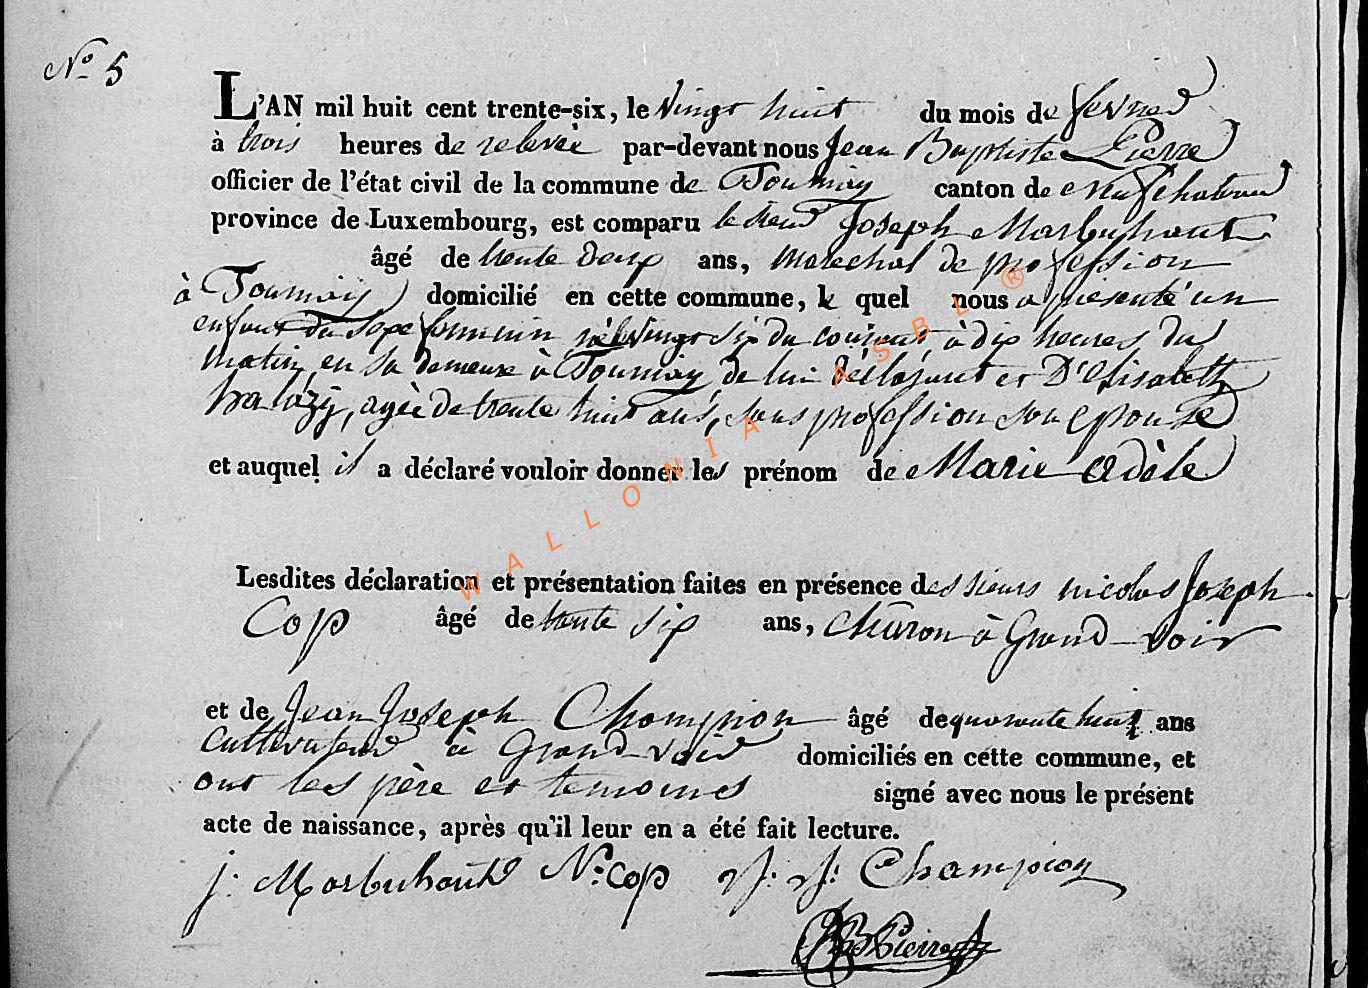 N° 5
L'AN mil huit cent trente-six, le vingt huit du mois de fevrier
à trois heures de relevée par-devant nous Jean Baptiste Pierre
officier de l'état civil de la commune de Tournay canton de neufchateau
province de Luxembourg, est comparu le sieur Joseph Marbuhant
âgé de trente deux ans, marechal de profession
à Tournay domicilié en cette commune, le quel nous a presenté un
enfant du sexe feminin né le vingt six du courant à dix heures du
matin, en sa demeure à Tournay, de lui déclarant et D'Elisabeth
agée de trente huit ans, sans profession son epouse
et auquel il a déclaré vouloir donner les prénom de Marie Adèle
Lesdites déclaration et présentation faites en présence des sieurs nicolas Joseph
Cop âgé de trente six ans, charon à Grand-voir
et de Jean Joseph Champion âgé de quarante huit ans
cultivateur à Grand-voir domiciliés en cette commune, et
ont les père et temoins signé avec nous le présent
acte de naissance, après qu'il leur en a été fait lecture.
j. Marbuhant N. Cop J. J. Champion
JB Pierre
WALLONIA ASBL ®